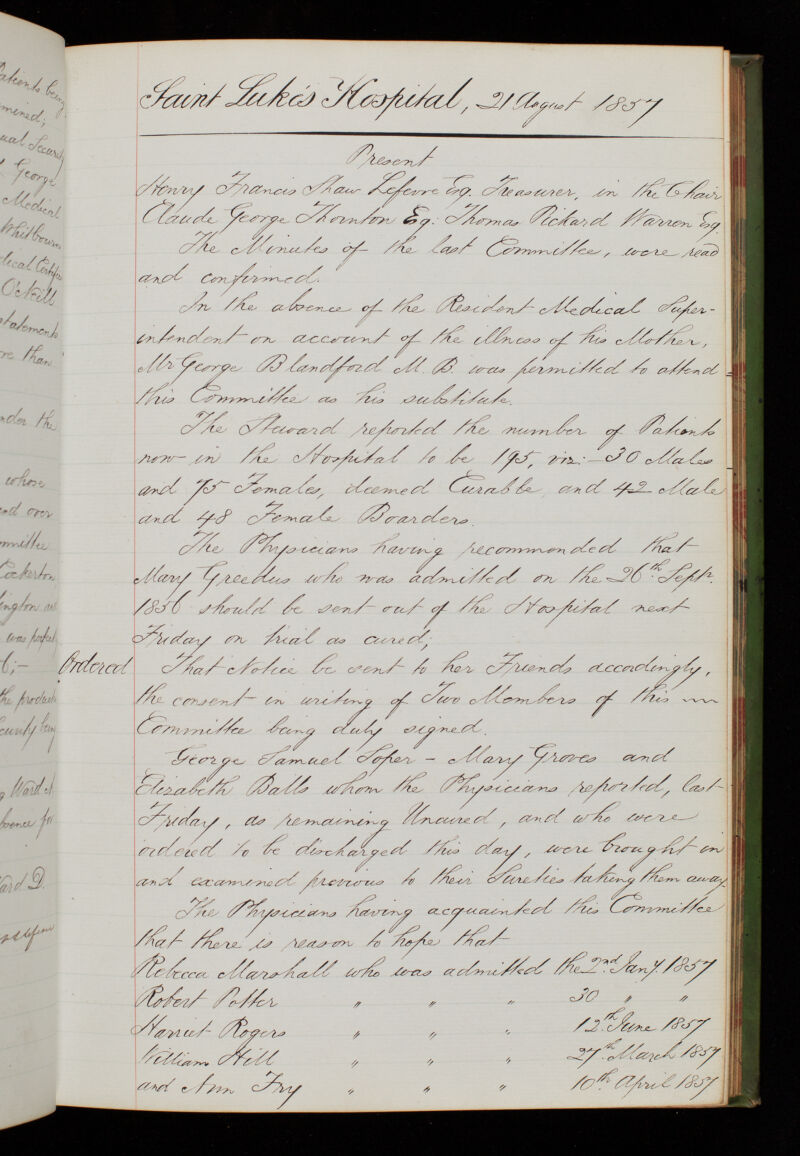 Patients being
mined;
ual Security
George
Medical
Whitbourn
dical Certific
O'Neill
statements
re than
nder the
whose
ed over
mmittee
Cockerton
ington
was
the produc
curity being
Ward
bsence for
ard D.
Saint Luke's Hospital, 21 August 1857
Present
Henry Francis Shaw Lefevre Esq. Treasurer, in the Chair
Claude George Thornton Esq: Thomas Pickard Warren Esq.
The Minutes of the last Committee, were read
and confirmed.
In the absence of the Resident Medical Super-
intendent on account of the illness of his Mother,
Mr George Blandford M. B. was permitted to attend
this Committee as his substitute.
The Steward reported the number of Patients
now in the Hospital to be 195, viz: - 30 Males
and 75 Females, deemed Curable, and 42 Male
and 48 Female Boarders.
The Physicians having recommended that
Mary Greedus who was admitted on the 26th. Septr.
1856 should be sent out of the Hospital next
Friday on trial as cured;
Ordered That Notice be sent to her Friends accordingly,
the consent in writing of Two Members of this
Committee being duly signed.
George Samuel Soper - Mary Groves and
Elizabeth Balls whom the Physicians reported, last
Friday, as remaining Uncured, and who were
ordered to be discharged this day, were brought in
and examined previous to their Sureties taking them away.
The Physicians having acquainted this Committee
that there is reason to hope that
Rebecca Marshall who was admitted the 2nd. Jany. 1857
Robert Potter " " " 30 " "
Harriet Rogers " " " 12th. June 1857
William Hill " " " 27th. March 1857
and Ann Fry " " " 10th. April 1857